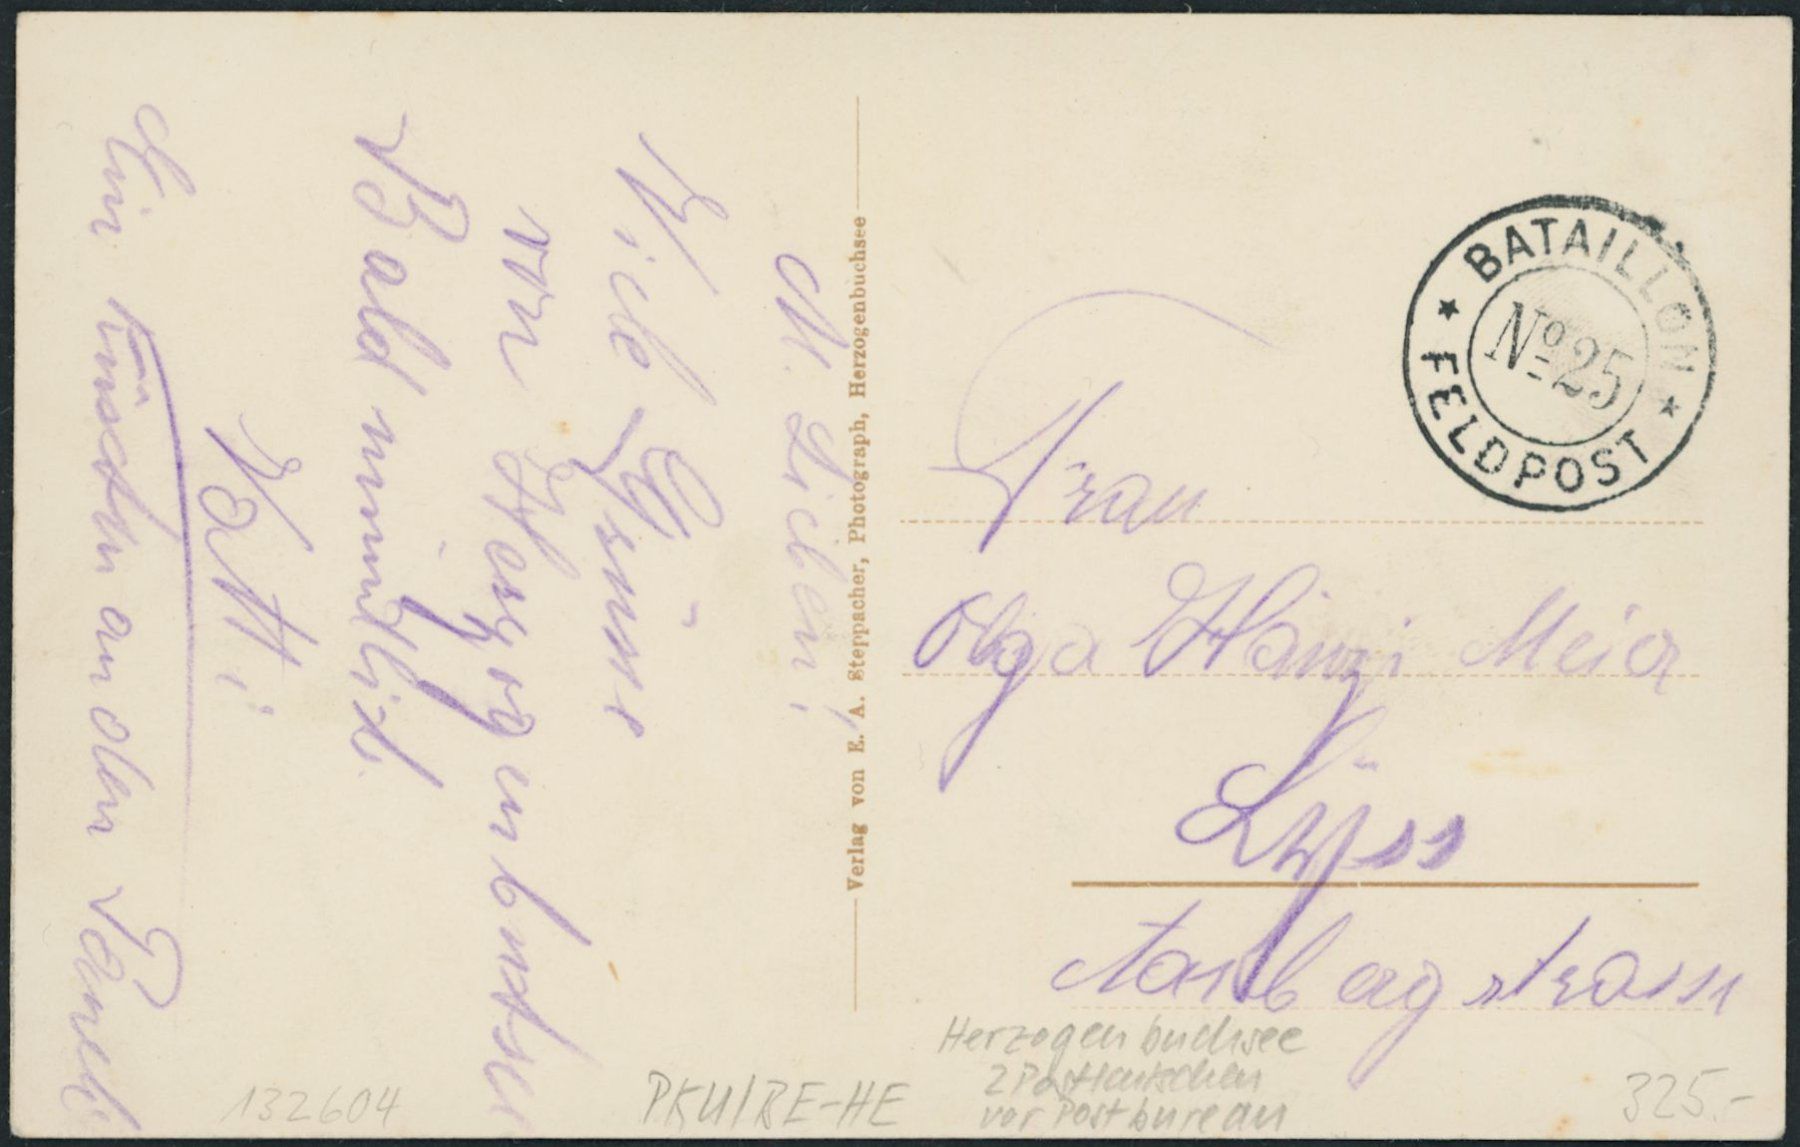 M. Lieben!
Viele Grüsse
von Herzogenbuchsee
Bald mündlich.
Vatti
Ein Küsschen an den
Verlag von E. A. Steppacher, Photograph, Herzogenbuchsee
BATAILLON
No 25
FELDPOST
Frau
Olga Hänzi Meier
Lÿss
Aarbergstrasse
132604
PKU/BE-HE
Herzogenbuchsee
2 Postkutschen
vor Postbureau
325.-